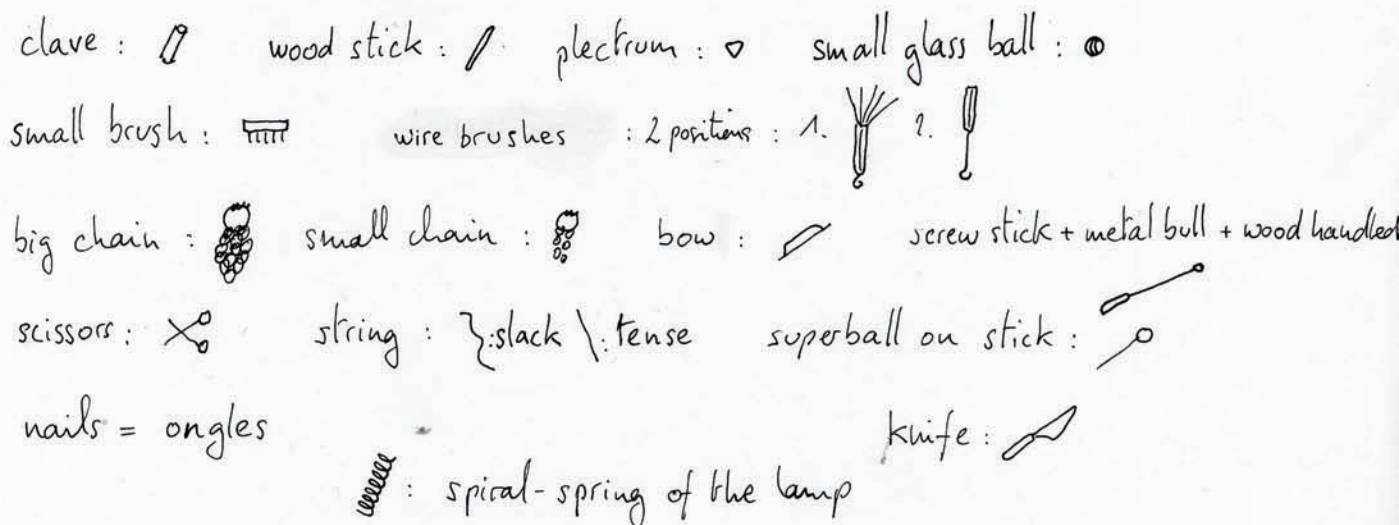 clave : wood stick : plectrum : small glass ball :
small brush : wire brushes : 2 positions : 1. 2.
big chain : small chain : bow : screw stick + metal bull + wood handled
scissors : string : :slack : tense superball on stick :
nails = ongles knife :
: spiral-spring of the lamp